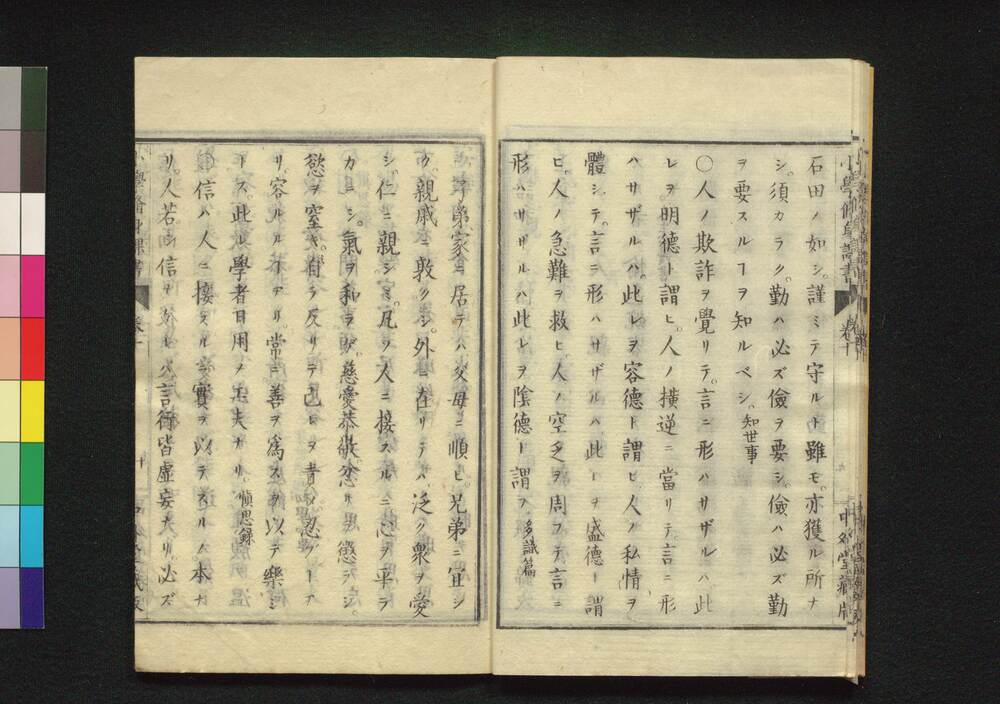 小學修身課書
卷十
中外堂藏版
石田ノ如シ。謹ミテ守ルト雖モ。亦獲ル所ナ
シ。須カラク。勤ハ必ズ儉ヲ要シ。儉ハ必ズ勤
ヲ要スルヿヲ知ルベシ。知世事
〇人ノ欺詐ヲ覺リテ。言ニ形ハサザルハ。此
レヲ。明德ト謂ヒ。人ノ横逆ニ當リテ。言ニ形
ハサザルハ。此レヲ容德ト謂ヒ。人ノ私情ヲ
體シテ。言ニ形ハサザルハ此レヲ盛德ト謂
ヒ。人ノ急難ヲ救ヒ。人ノ空乏ヲ周フテ言ニ
形ハサザルハ此レヲ陰德ト謂フ 多識篇
家ニ居テハ父母ニ順ヒ。兄弟ニ宜シ
ク。親戚ニ敦クシ。外ニ在リテハ泛ク衆ヲ愛
シ。仁ニ親シミ。凡ソ人ニ接スルニ心ヲ平ラ
カニシ。氣ヲ和ラゲ。慈愛恭敬。忿リヲ懲ラシ。
慾ヲ窒ギ。自ラ反リテ己レヲ責メ。忍ブヿア
リ。容ルルヿアリ。常ニ善ヲ爲スヲ以テ樂ミ
トス。此レ學者日用ノ工夫ナリ。愼思録
〇信ハ人ニ接スルニ實ヲ以テスルノ本ナ
リ。人若シ信ナケレバ言行皆虚妄ナリ。必ズ